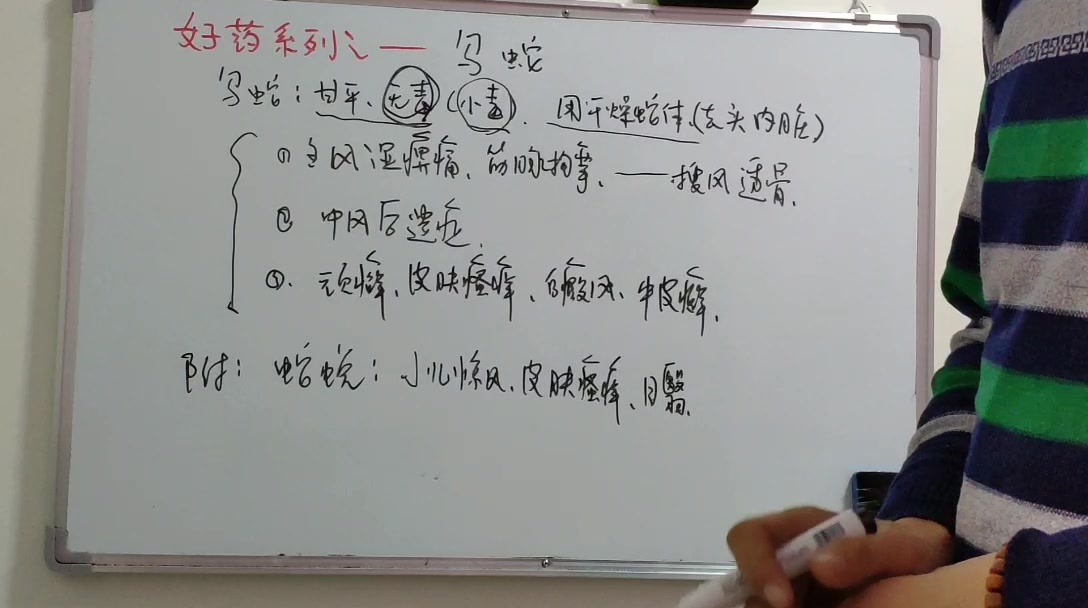 好药系列之一 乌蛇
乌蛇：甘平、无毒（小毒）．用干燥蛇体（去头内脏）
① 主风湿痹痛、筋脉拘挛、—— 搜风透骨．
② 中风后遗症．
③．顽癣、皮肤瘙痒、白癜风、牛皮癣．
附：蛇蜕：小儿惊风、皮肤瘙痒、目翳．